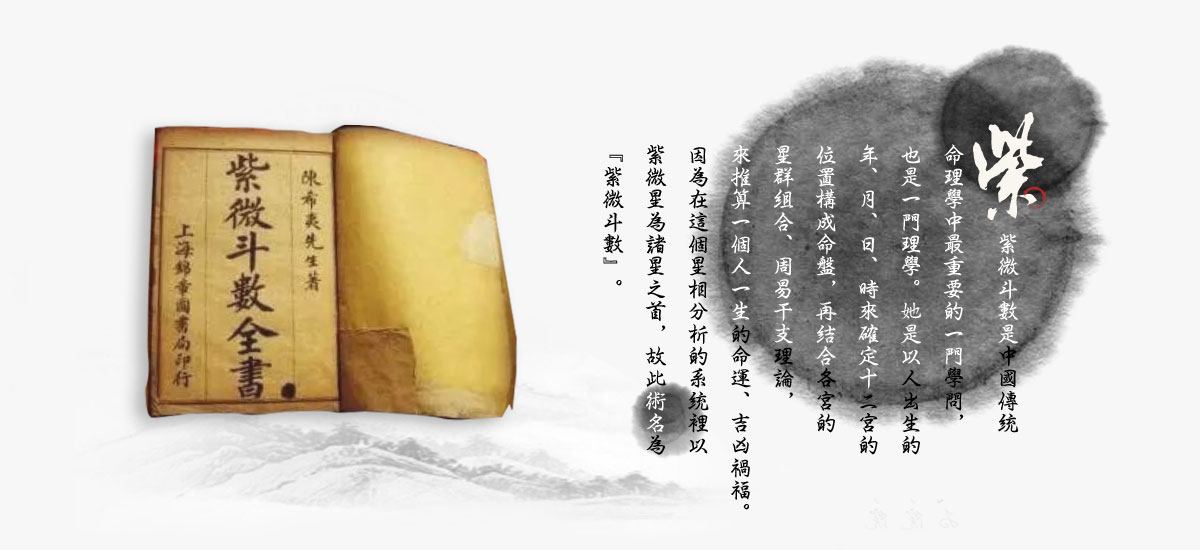 紫
紫微斗數是中國傳統
命理學中最重要的一門學問，
也是一門理學。她是以人出生的
年、月、日、時來確定十二宮的
位置構成命盤，再结合各宮的
星群組合、周易干支理論，
來推算一個人一生的命運、吉凶禍福。
因為在這個星相分析的系統裡以
紫微星為諸星之首，故此術名為
『紫微斗數』。
陳希夷先生著
紫微斗數全書
上海錦章圖書局印行